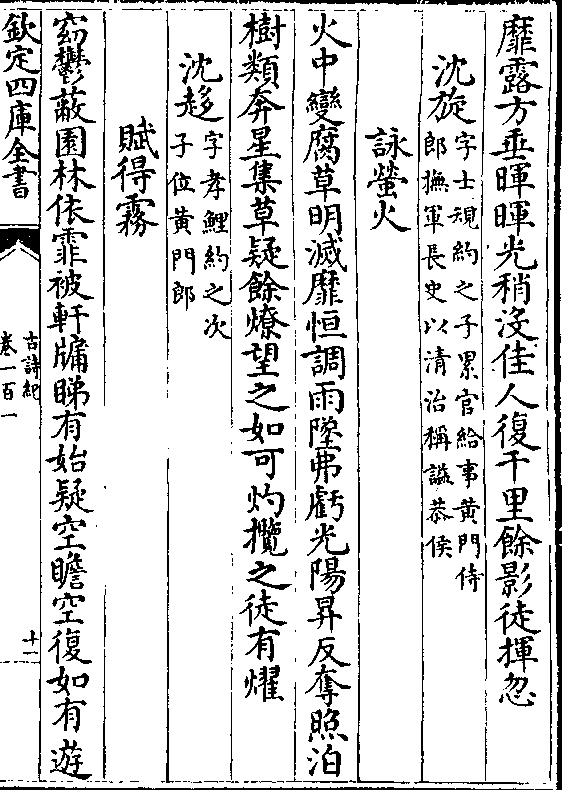 靡露方垂暉暉光稍没佳人復千里餘影徒揮忽
沈旋字士規約之子累官給事黄門侍
郎撫軍長史以清治稱諡恭侯
詠螢火
火中變腐草明滅靡恒調雨墜弗虧光陽昇反奪照泊
樹類奔星集草疑餘燎望之如可灼攬之徒有耀
沈趍字孝鯉約之次
子位黄門郎
賦得霧
窈鬱蔽園林依霏被軒牖睇有始疑空瞻空復如有遊
欽定四庫全書
古詩紀
卷一百一
十一